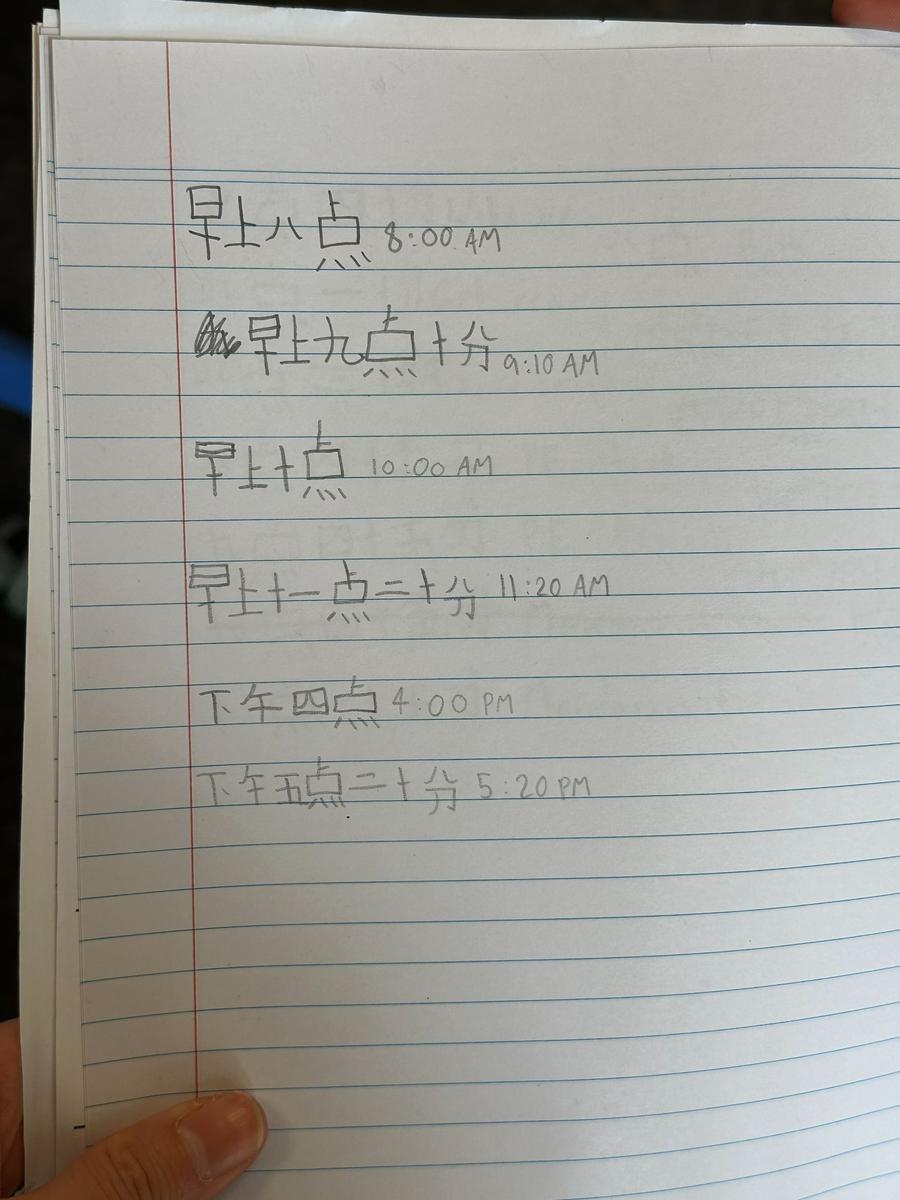 早上八点 8:00 AM
早上九点十分 9:10 AM
早上十点 10:00 AM
早上十一点二十分 11:20 AM
下午四点 4:00 PM
下午五点二十分 5:20 PM